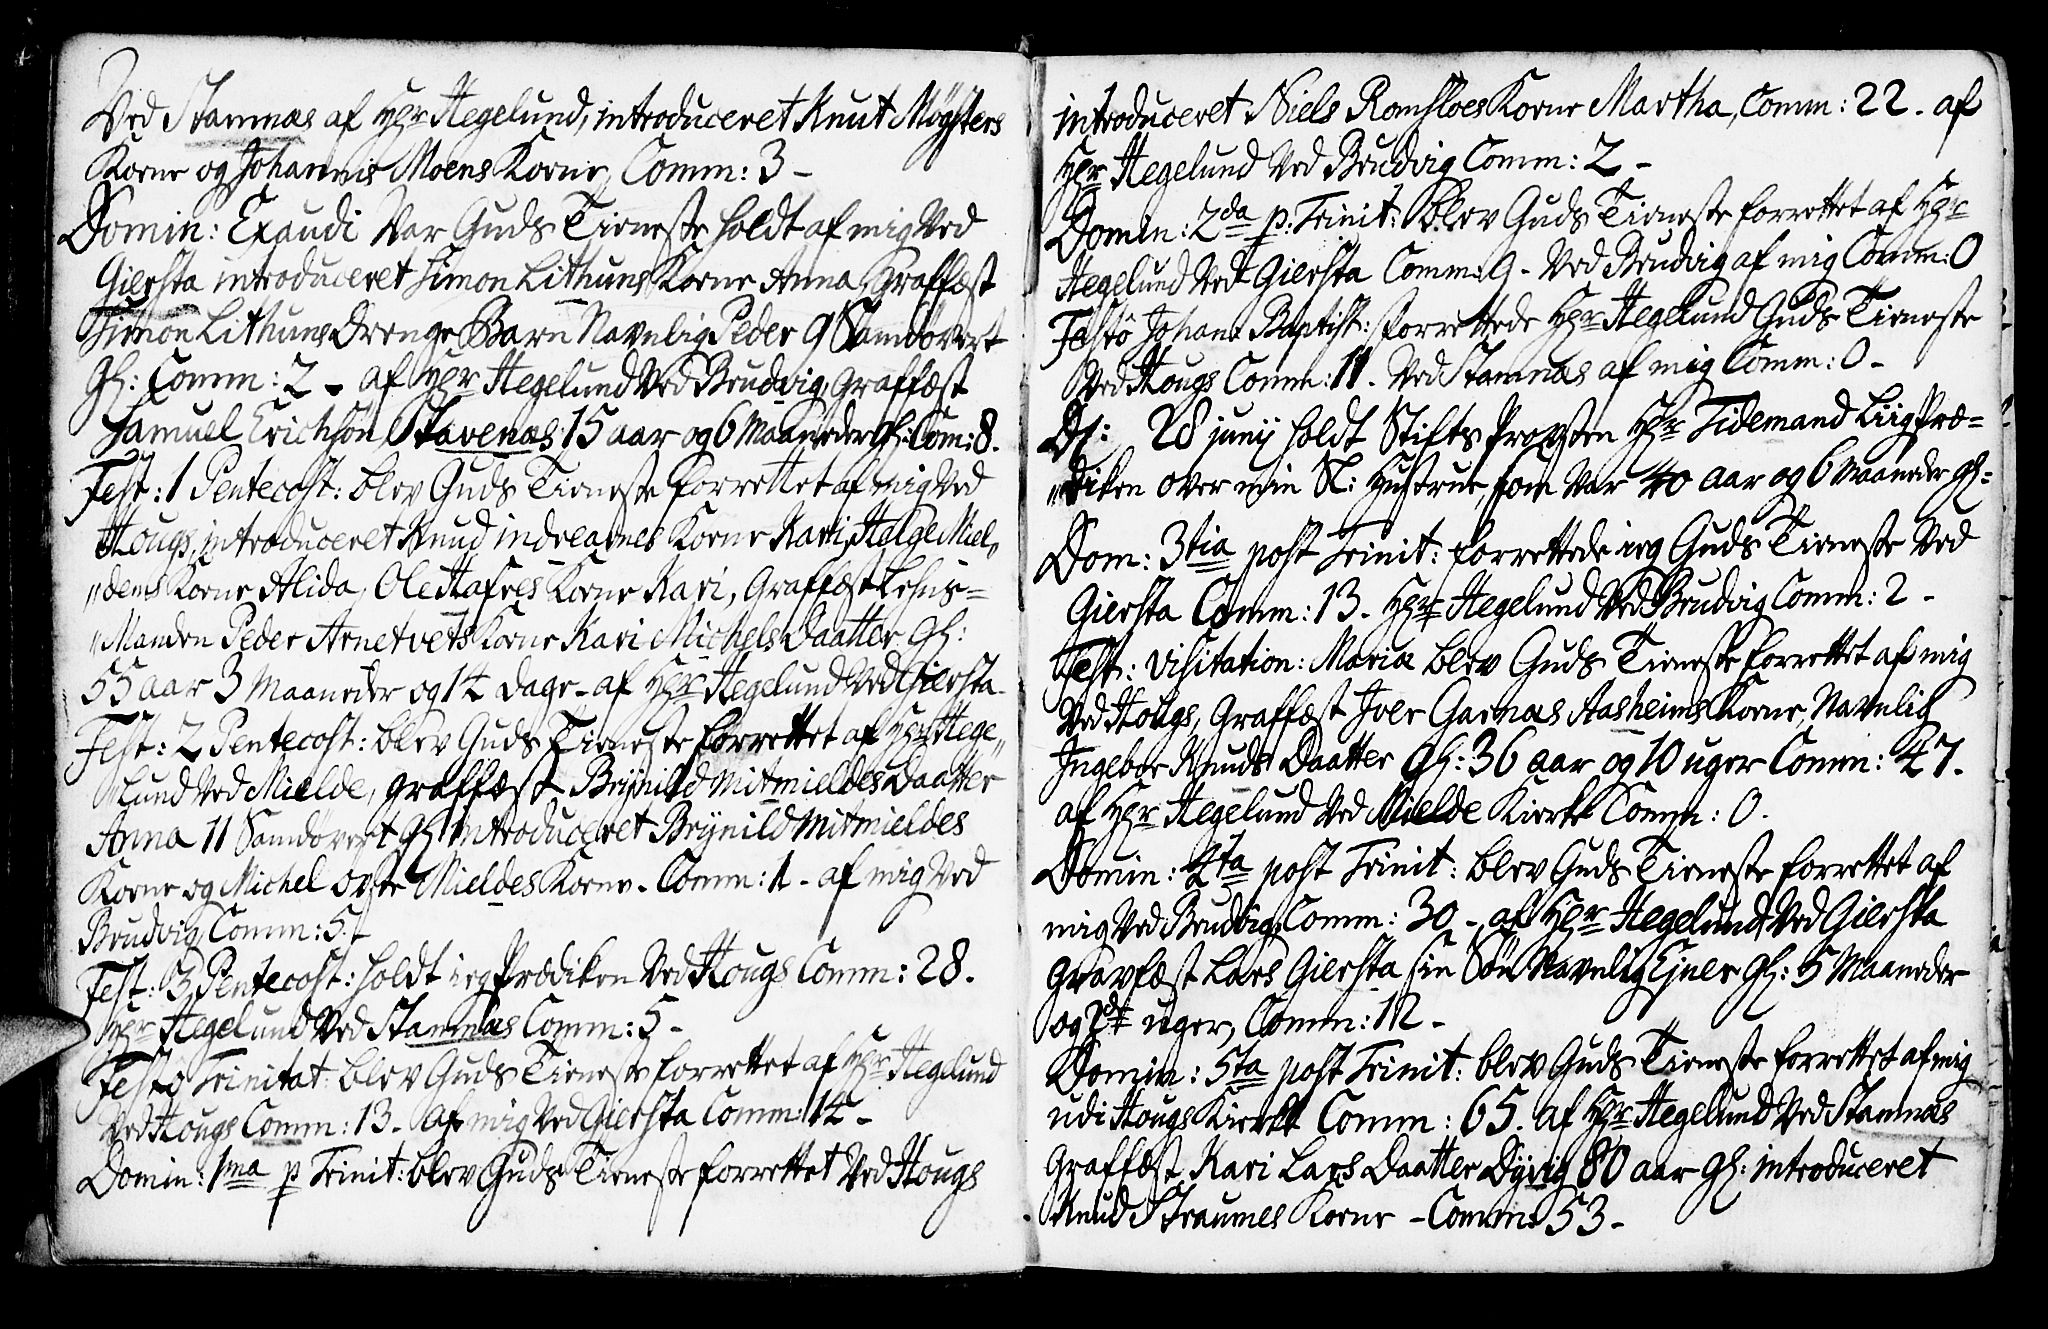 Ved Stamnæs af Hr Hegelund, introduceret Knut Mögsters
Kone og Johannis Moens Kone, Comm: 3 -
Domin: Exaudi Var Guds Tieneste holdt af mig Ved
Giersta introduceret Simon Lithuns Kone Anna, Graffæst
Simon Lithuns Drenge Barn Navnlig Peder 9 Samdövert
Gl: Comm: 2 - af Hr Hegelund Ved Brudvig, Graffæst
Samuel Erichsön Stavenæs 15 aar og 6 Maaneder Gl: Com: 8.
Fest: 1 Pentecost: blev Guds Tieneste forrettet af mig Ved
Hougs, introduceret Knud indrearnes Kone Kari, Helge Miel„
„dems Kone Alida, Ole Hafres Kone Kari, Graffæst Lehns=
„Manden Peder Arnetvets Kone Kari Michels Daatter Gl:
55 aar 3 Maaneder og 14 dage - af Hr Hegelund Ved Giersta -
Fest: 2 Pentecost: blev Guds Tieneste forrettet af Hr Hege„
„lund Ved Mielde, graffæst Brÿnild Mitmieldes Daatter
Anna 11 Samdövert Gl introduceret Brÿnild Mitmieldes
Kone og Michel ovste Mieldes Kone - Comm: 1 - af mig Ved
Brudvig Comm: 5. -
Fest: 3 Pentecost: holdt ieg Prædiken Ved Hougs Comm: 28.
Hr Hegelund Ved Stamnæs Comm: 5 -
Festo Trinitat: blev Guds Tieneste forrettet af Hr Hegelund
Ved Hougs Comm: 13. af mig Ved Giersta Comm: 14 -
Domin: 1ma p Trinit: blev Guds Tieneste forrettet Ved Hougs
introduceret Niels Romsloes Kone Martha, Comm: 22 - af
Hr Hegelund Ved Brudvig Comm: 2 -
Domin: 2da p: Trinit: blev Guds Tieneste forrettet af Hr
Hegelund Ved Giersta Comm: 9 - Ved Brudvig af mig Comm: 0
Festô Johan: Baptist: forrettede Hr Hegelund Guds Tieneste
Ved Hougs Comm: 11. Ved Stamnæs af mig Comm: 0 -
D: 28 junÿ holdt Stifts Provsten Hr Tidemand Liig Præ=
„diken over min Sl: Hustrue, som Var 40 aar og 6 Maaneder Gl:
Dom: 3tia post Trinit: forrettede ieg Guds Tieneste Ved
Giersta Comm: 13. Hr Hegelund Ved Brudvig Comm: 2 -
Fest: Visitation: Mariæ blev Guds Tieneste forrettet af mig
Ved Hougs, Graffæst Iver Garnæs Aasheims Kone, Navnlig
Ingebor Knuds Daatter Gl: 36 aar og 10 uger Comm: 47.
af Hr Hegelund Ved Mielde Kirke Comm: 0.
Domin: 4ta post Trinit: blev Guds Tieneste forrettet af
mig Ved Brudvig Comm: 30 - af Hr Hegelund Ved Giersta
Gravfæst Lars Giersta sin Sön Navnlig Ejner Gl: 5 Maaneder
og uger, Comm: 12 -
Domin: 5ta post Trinit: blev Guds Tieneste forrettet af mig
udi Hougs Kirke Comm: 65. af Hr Hegelund Ved Stamnæs
Graffæst Kari Lars Daatter Dÿvig 80 aar Gl: introduceret
Knud Straumes Kone - Comm: 53 -